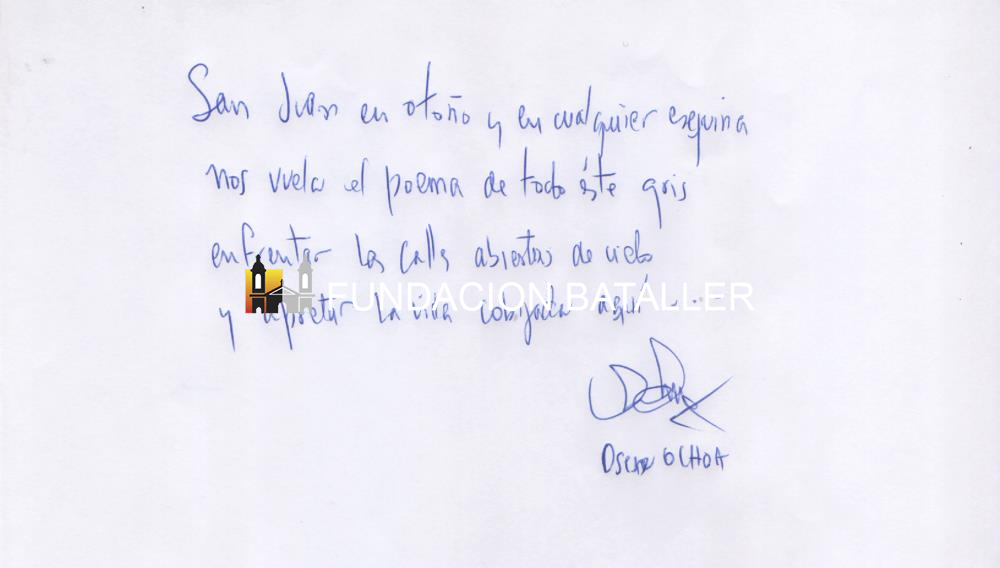 San Juan en otoño y en cualquier esquina
nos vuela el poema de todo éste gris
enfrentar las calles abiertas de cielo
y apretar la vida aquí....
FUNDACION BATALLER
Oscar OCHOA